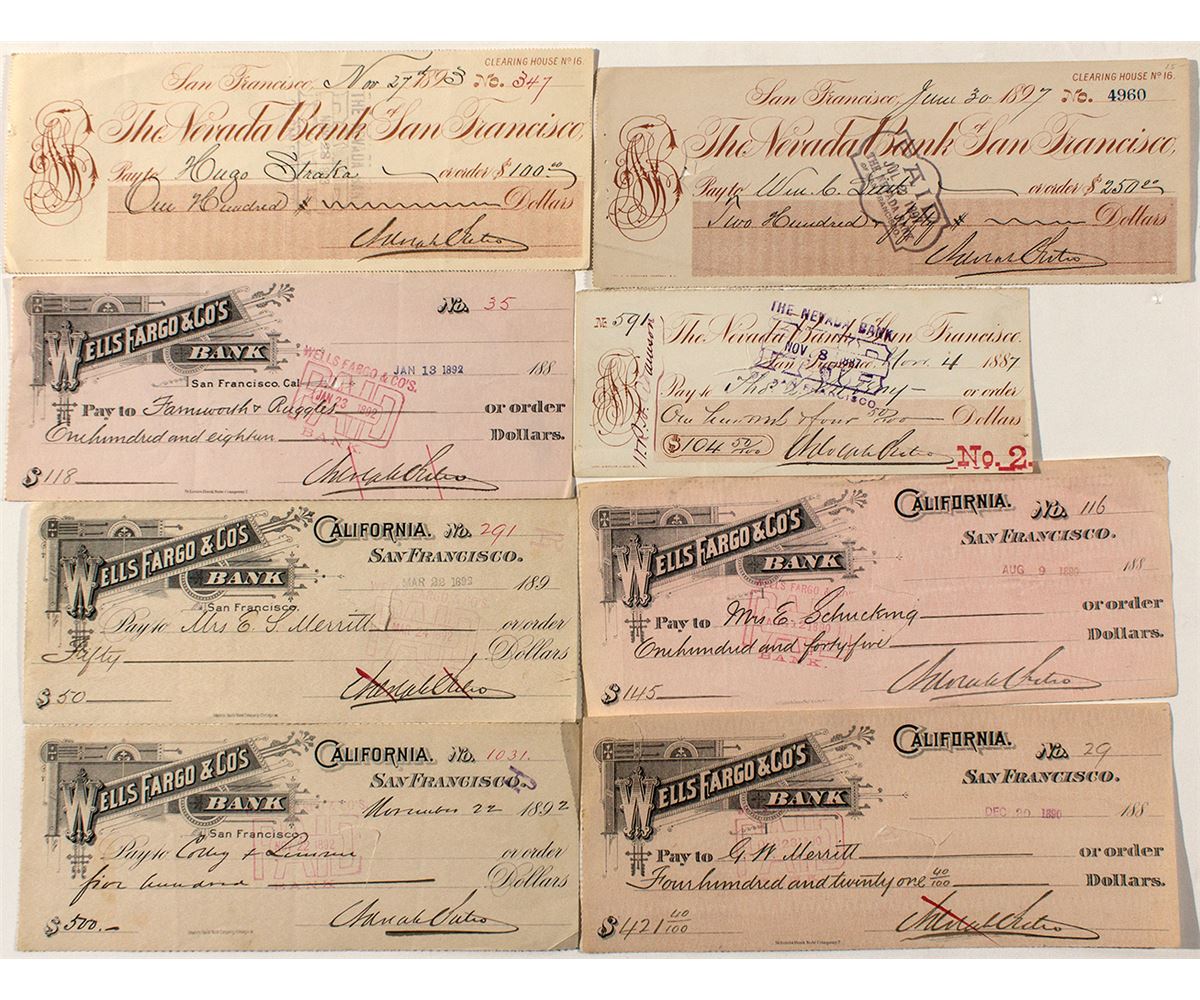 CLEARING HOUSE Nº 16.
San Francisco, Nov 27th 1893 No. 347
The Nevada Bank of San Francisco,
Pay to Hugo Straka or order $100.00
One Hundred Dollars
Adolph Sutro
CLEARING HOUSE Nº 16.
San Francisco, June 30 1897 No. 4960
The Nevada Bank of San Francisco,
Pay to Wm C. or order $250.00
Two Hundred & fifty Dollars
Adolph Sutro
PAID
WELLS FARGO & CO'S
BANK
No. 35
San Francisco, Cal JAN 13 1892 188
Pay to Farnsworth & Ruggles or order
One hundred and eighteen Dollars.
$118
Adolph Sutro
WELLS FARGO & CO'S.
PAID
JAN 23 1892
BANK
No. 591
The Nevada Bank of San Francisco.
San Francisco, Nov. 4 1887
Pay to or order
One hundred & four 50/100 Dollars
$104 50/100
Adolph Sutro
No. 2.
THE NEVADA BANK
NOV 8 1887
PAID
OF SAN FRANCISCO
WELLS FARGO & CO'S
BANK
San Francisco.
CALIFORNIA. No. 291
SAN FRANCISCO.
MAR 22 189
Pay to Mrs E. S. Merritt or order
Fifty Dollars
$50
Adolph Sutro
WELLS FARGO & CO'S
BANK
CALIFORNIA. No. 116
SAN FRANCISCO.
AUG 9 1890 188
Pay to Mrs E Schucking or order
One hundred and forty five Dollars.
$145
Adolph Sutro
WELLS FARGO & CO'S
BANK
San Francisco
CALIFORNIA. No. 1031.
SAN FRANCISCO.
November 22 1892
Pay to or order
five hundred Dollars
$500.-
Adolph Sutro
WELLS FARGO & CO'S
BANK
CALIFORNIA. No. 29
SAN FRANCISCO.
DEC 20 1890 188
Pay to G. W. Merritt or order
Four hundred and twenty one 40/100 Dollars.
$421 40/100
Adolph Sutro